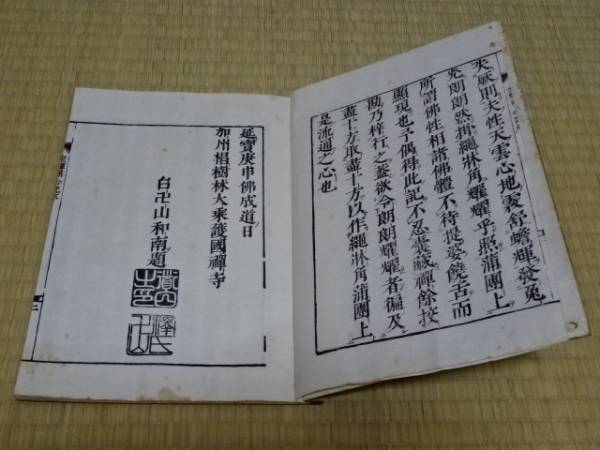 矣厥則夫性天雲心地凌舒蟾輝發兔
先朗朗然掛繩牀角耀耀乎照蒲團上
所謂佛性相諸佛體不待提婆饒舌而
顯現也予偶得此記不忍囊藏禪餘挍
勘乃梓行之蓋欲令朗朗耀耀者徧及
盡十方取盡十方以作繩牀角蒲團上
是流通之心也
延寶庚申佛成道日
加州椙樹林大乘護國禪寺
白卍山和南題